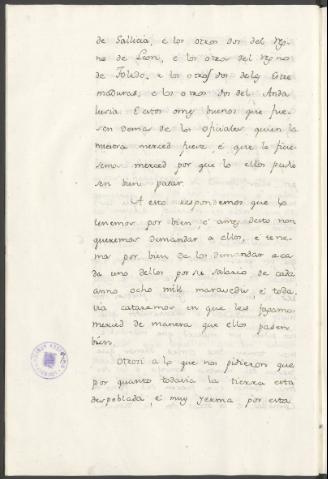 de Gallicia, e los otros dos del Rey-
no de Leon, e los otros del Reyno
de Toledo, e los otros dos delas Estre
maduras, e los otros dos del Anda
lucia: E estos omes buenos que fue-
sen demas de los oficiales quien la
nuestra merced fuere, é que le ficie-
semos merced por que lo ellos pudie
sen bien pasar.
A esto respondemos que lo
tenemos por bien, é ames desto non
queremos demandar a ellos, é tene-
mos por bien de los demandar a ca
da uno dellos por su salario de cada
anno ocho mill maravedis, é toda
via cataremos en que les fagamos
merced de manera que ellos pasen
bien.
Otrosi a lo que nos pidieron que
por quanto todavia la tierra esta
despoblada, é muy yerma por esta